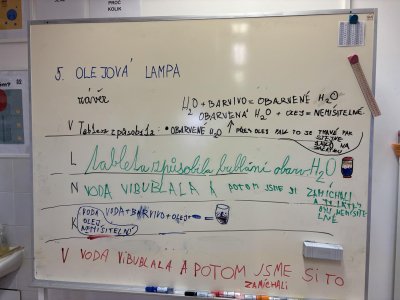 PROČ
KOLIK
5. OLEJOVÁ LAMPA
závěr
H₂O + BARVIVO = OBARVENÉ H₂O
OBARVENÁ H₂O + OLEJ = NEMÍSITELNÉ.
V Tableta způsobila: • OBARVENÉ H₂O ↑ PŘES OLEJ PAK TO JE TMAVÉ PAK
L tableta způsobila bublání obarv. H₂O
N VODA VIBUBLALA A POTOM JSME JI ZAMÍCHALI
NEMÍSITELNÉ
K VODA VODA+BARVIVO+OLEJ=
OLEJ
NEMÍSITELNÍ
V VODA VIBUBLALA A POTOM JSME SI TO
ZAMÍCHALI